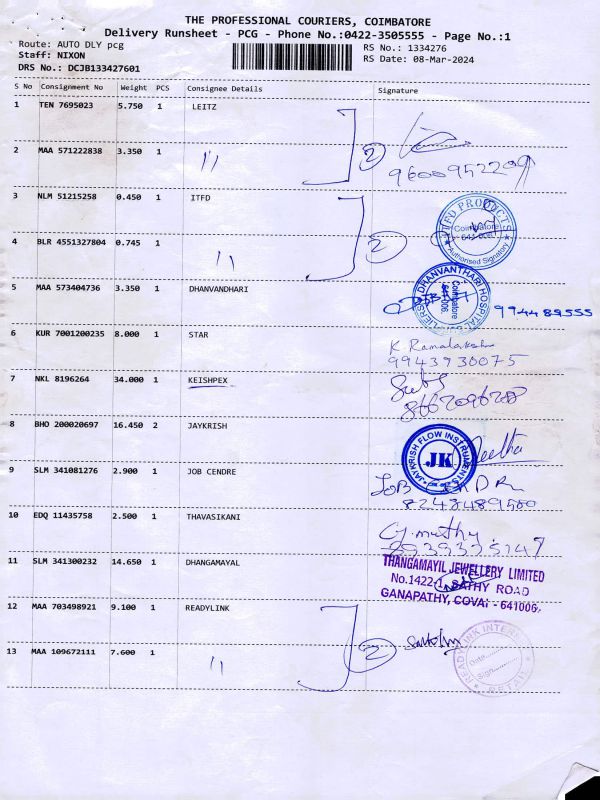 THE PROFESSIONAL COURIERS, COIMBATORE
Delivery Runsheet - PCG - Phone No.:0422-3505555 - Page No.:1
Route: AUTO DLY pcg
RS No.: 1334276
Staff: NIXON
RS Date: 08-Mar-2024
DRS No.: DCJB133427601
S No Consignment No Weight PCS Consignee Details Signature
1 TEN 7695023 5.750 1 LEITZ
2 MAA 571222838 3.350 1 " 2
9600952209
3 NLM 51215258 0.450 1 ITFD
ITFD PRODUCTS
Coimbatore
Authorised Signatory
4 BLR 4551327804 0.745 1 " 2
5 MAA 573404736 3.350 1 DHANVANDHARI
DHANVANTHARI HOSPITAL
Coimbatore
994489555
6 KUR 7001200235 8.000 1 STAR
K. Ramalakshmi
9943930075
7 NKL 8196264 34.000 1 KEISHPEX
8 BHO 200020697 16.450 2 JAYKRISH
JAYKRISH FLOW INSTRUMENTS
JK
Geetha
9 SLM 341081276 2.900 1 JOB CENDRE
JOB
8248489560
10 EDQ 11435758 2.500 1 THAVASIKANI
11 SLM 341300232 14.650 1 DHANGAMAYAL
THANGAMAYIL JEWELLERY LIMITED
No.1422-1, SATHY ROAD
GANAPATHY, COVAI - 641006.
12 MAA 703498921 9.100 1 READYLINK
2
13 MAA 109672111 7.600 1 "
READYLINK INTERNET
Date
Sign
RETAIL